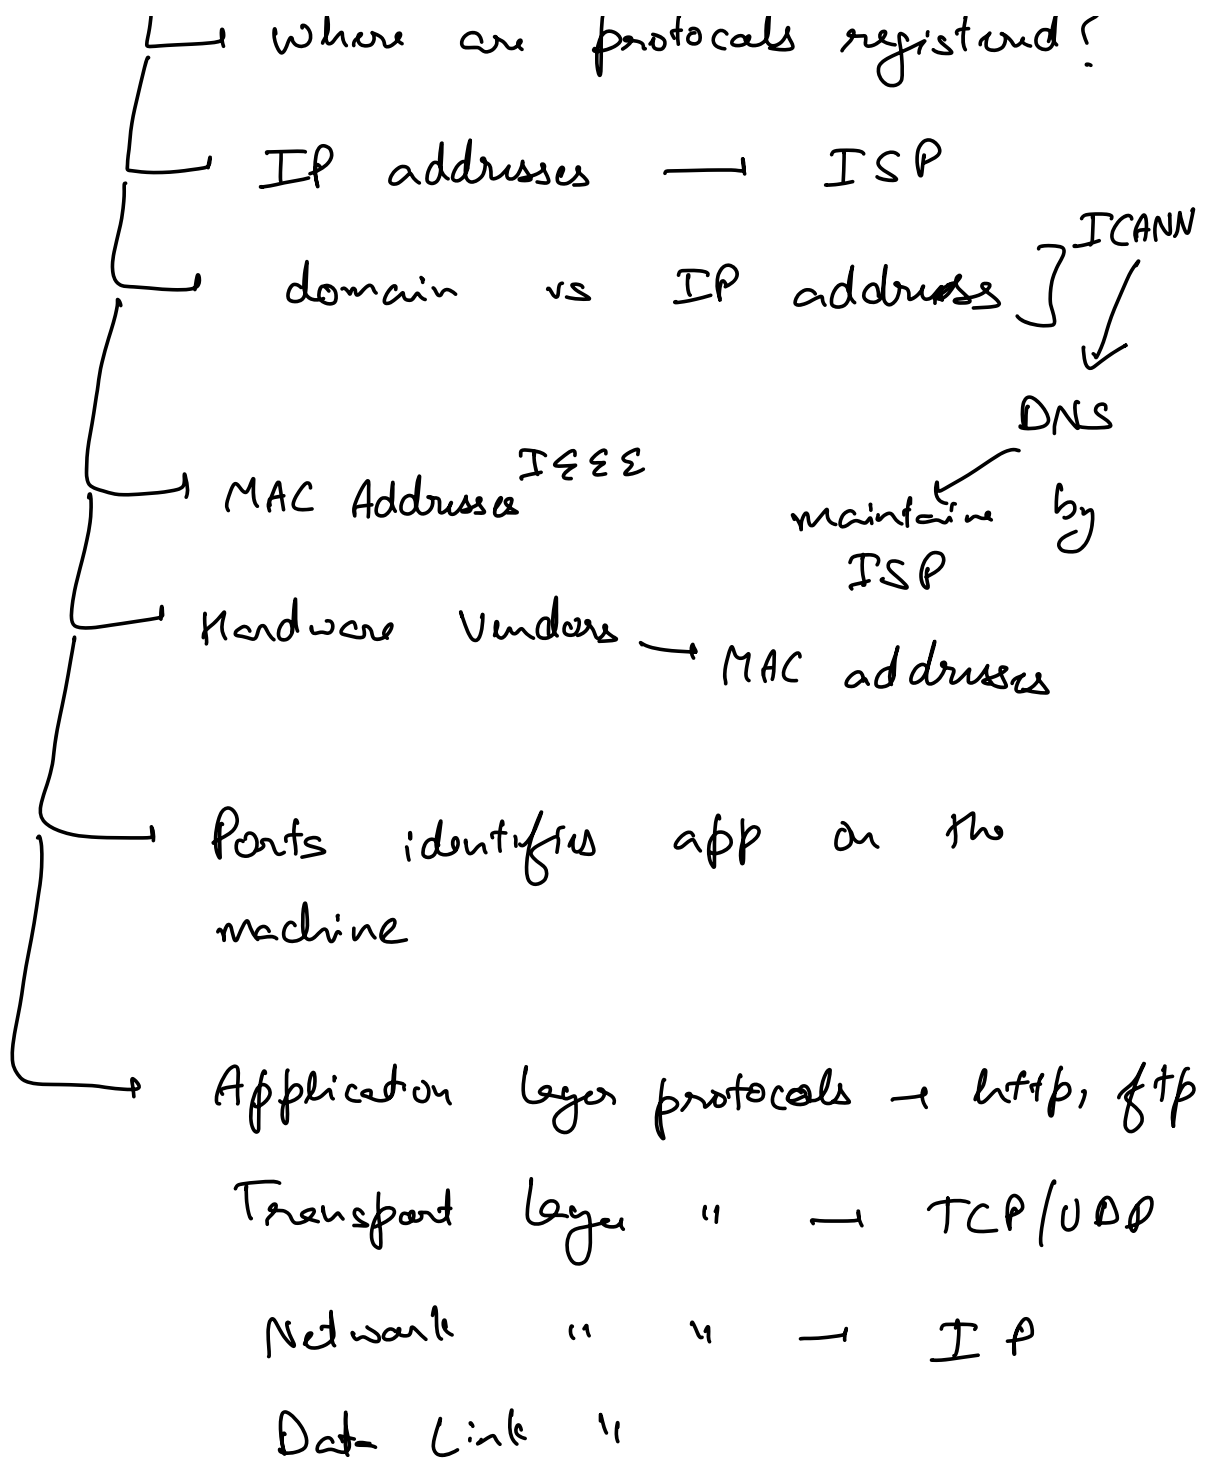 Where are protocals registered?
IP addresses — ISP
ICANN
domain vs IP address
DNS
IEEE
MAC Addresses
maintaine by
ISP
Hardware Vendors → MAC addresses
Ports identifies app on the
machine
Application layer protocals → http, ftp
Transport layer " — TCP/UDP
Network " " — IP
Data Link "